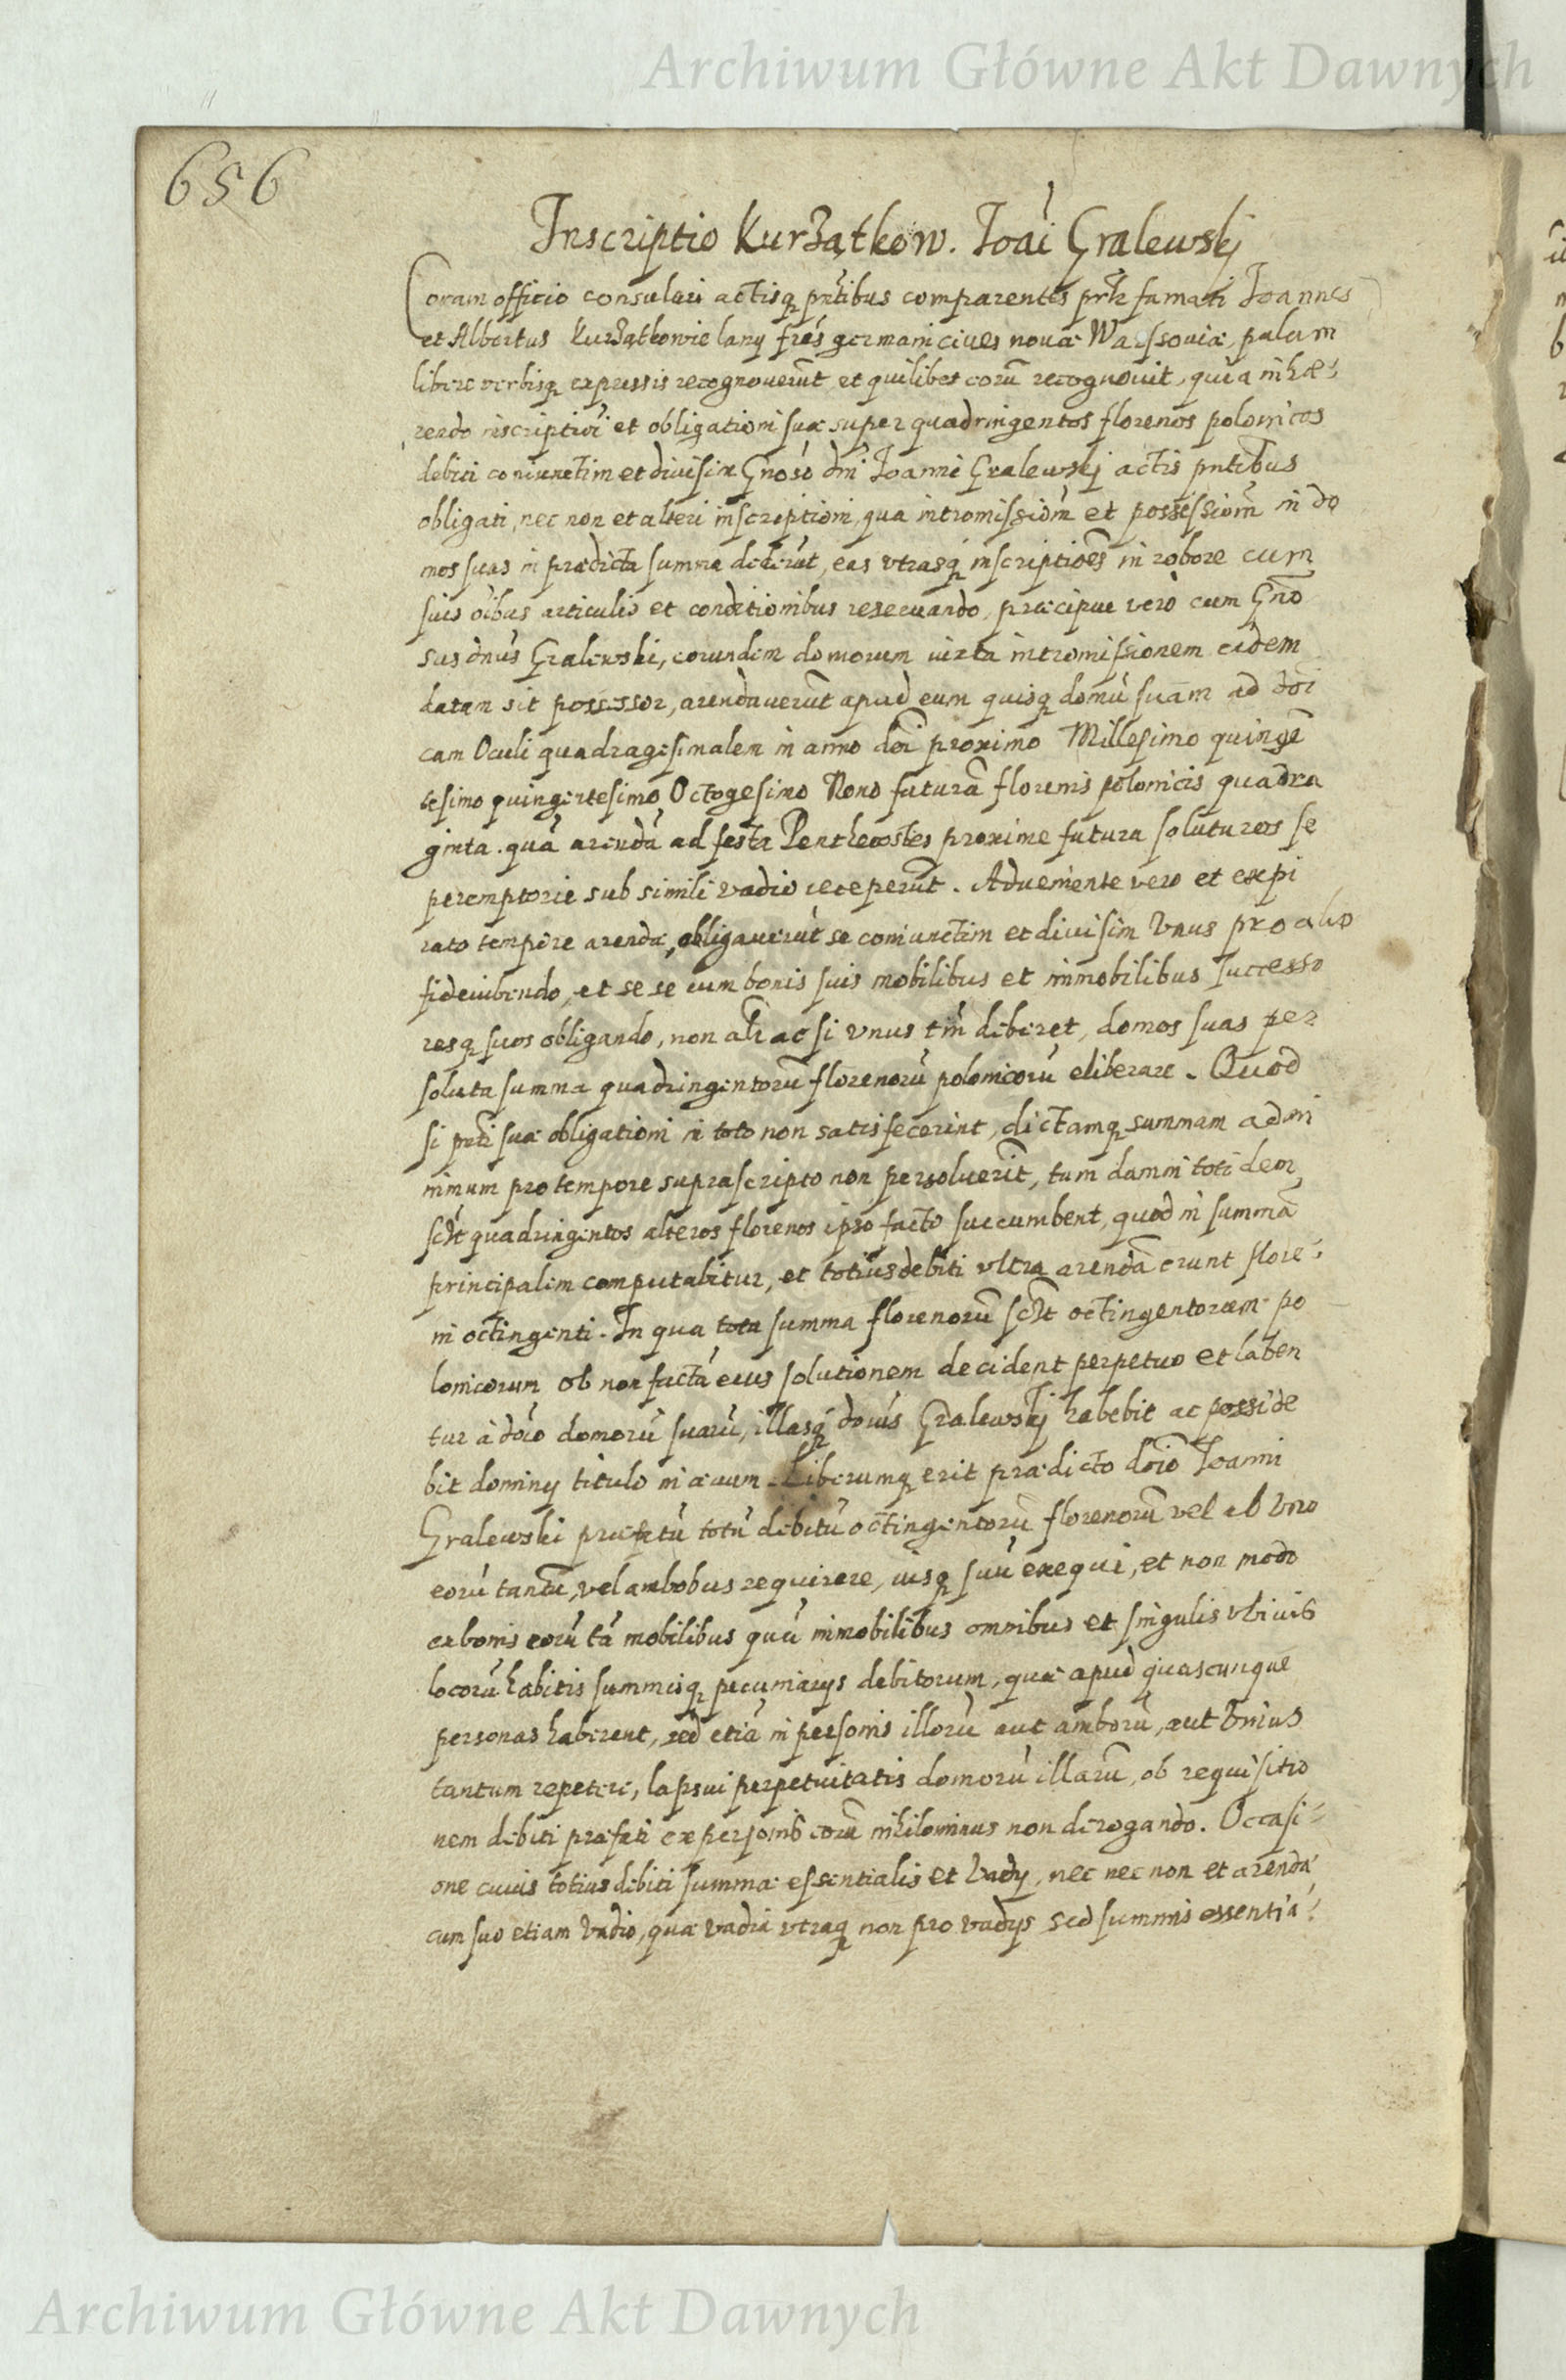 Archiwum Główne Akt Dawnych
656
Inscriptio Kurządkow. Joãi Gralewskj
Coram officio consulari actisq pñtibus comparentes famati Joannes
et Albertus lany frẽs germani ciues nouæ Warssouiæ, palam
libere verbisq expressis recognouerũt et quilibet eorũ recognouit, quia inhæ-
rendo inscriptiõi et obligationi suæ super quadringentos florenos polonicos
debiti coniunctim et diuisim Gñoso dñi Joanni Gralewskj actis pñtibus
obligati, nec non et alteri inscriptioni, qua intromissioñ et possessioñ in do
mos suas in prædicta summa dederũt, eas vtrasq inscriptiões in robore cum
suis oĩbus articulis et conditionibus reseruando, præcipue verò cum Gño
sus dnũs Gralewski, eorundem domorum iuxta intromissionem eidem
datam sit possessor, arendauerũt apud eum quisq domũ suam ad doĩ
cam Oculi quadragesimalem in anno doĩ proximo Millesimo quingẽ
tesimo quingentesimo Octogesimo Nono futurã florenis polonicis quadra
ginta. quã arendã ad festa Penthecostes proxime futura soluturos se
peremptorie sub simili vadio receperũt. Adueniente vero et expi
rato tempore arendæ, obligauerũt se coniunctim et diuisim vnus pro alio
fideiubendo, et se se cum bonis suis mobilibus et immobilibus successo
resq suos obligando, non ac si vnus tm̃ deberet, domos suas per
soluta summa quadringentorũ florenorũ polonicorũ eliberare. Quod
si suæ obligationi in toto non satisfecerint, dictamq summam ad mi
nimum pro tempore suprascripto non persoluerĩt, tum damni totidem
quadringentos alteros florenos ipso facto succumbent, quod in summã
principalem computabitur, et totius debiti vltra arendã erunt flore-
ni octingenti. In qua tota summa florenorũ octingentorum po
lonicorum ob non factã eius solutionem decident perpetuo et laben
tur à domorũ suarũ, illasq Gralewskj habebit ac posside
bit dominy titulo in æuum. Liberumq erit prædicto Joanni
Gralewski præfatũ totũ debitũ octingentorũ florenorũ vel ab vno
eorũ tantũ, vel ambobus requirere, iusq suũ exequi, et non modo
ex bonis eorũ tã mobilibus quã immobilibus omnibus et singulis vbiuis
locorũ habitis summisq pecuniarys debitorum, quæ apud quascunque
personas haberent, sed etiã in personis illorũ aut amborũ, aut vnius
tantum repetere, lapsui perpetuitatis domorũ illarũ, ob requisitio
nem debiti præfati ex personis eorũ nihilominus non derogando. Occasi-
one cuius totius debiti summæ essentialis et vady, nec nec non et arendæ
cum suo etiam vadio, quæ vadia vtraq non pro vadys sed summis essentia-
Archiwum Główne Akt Dawnych